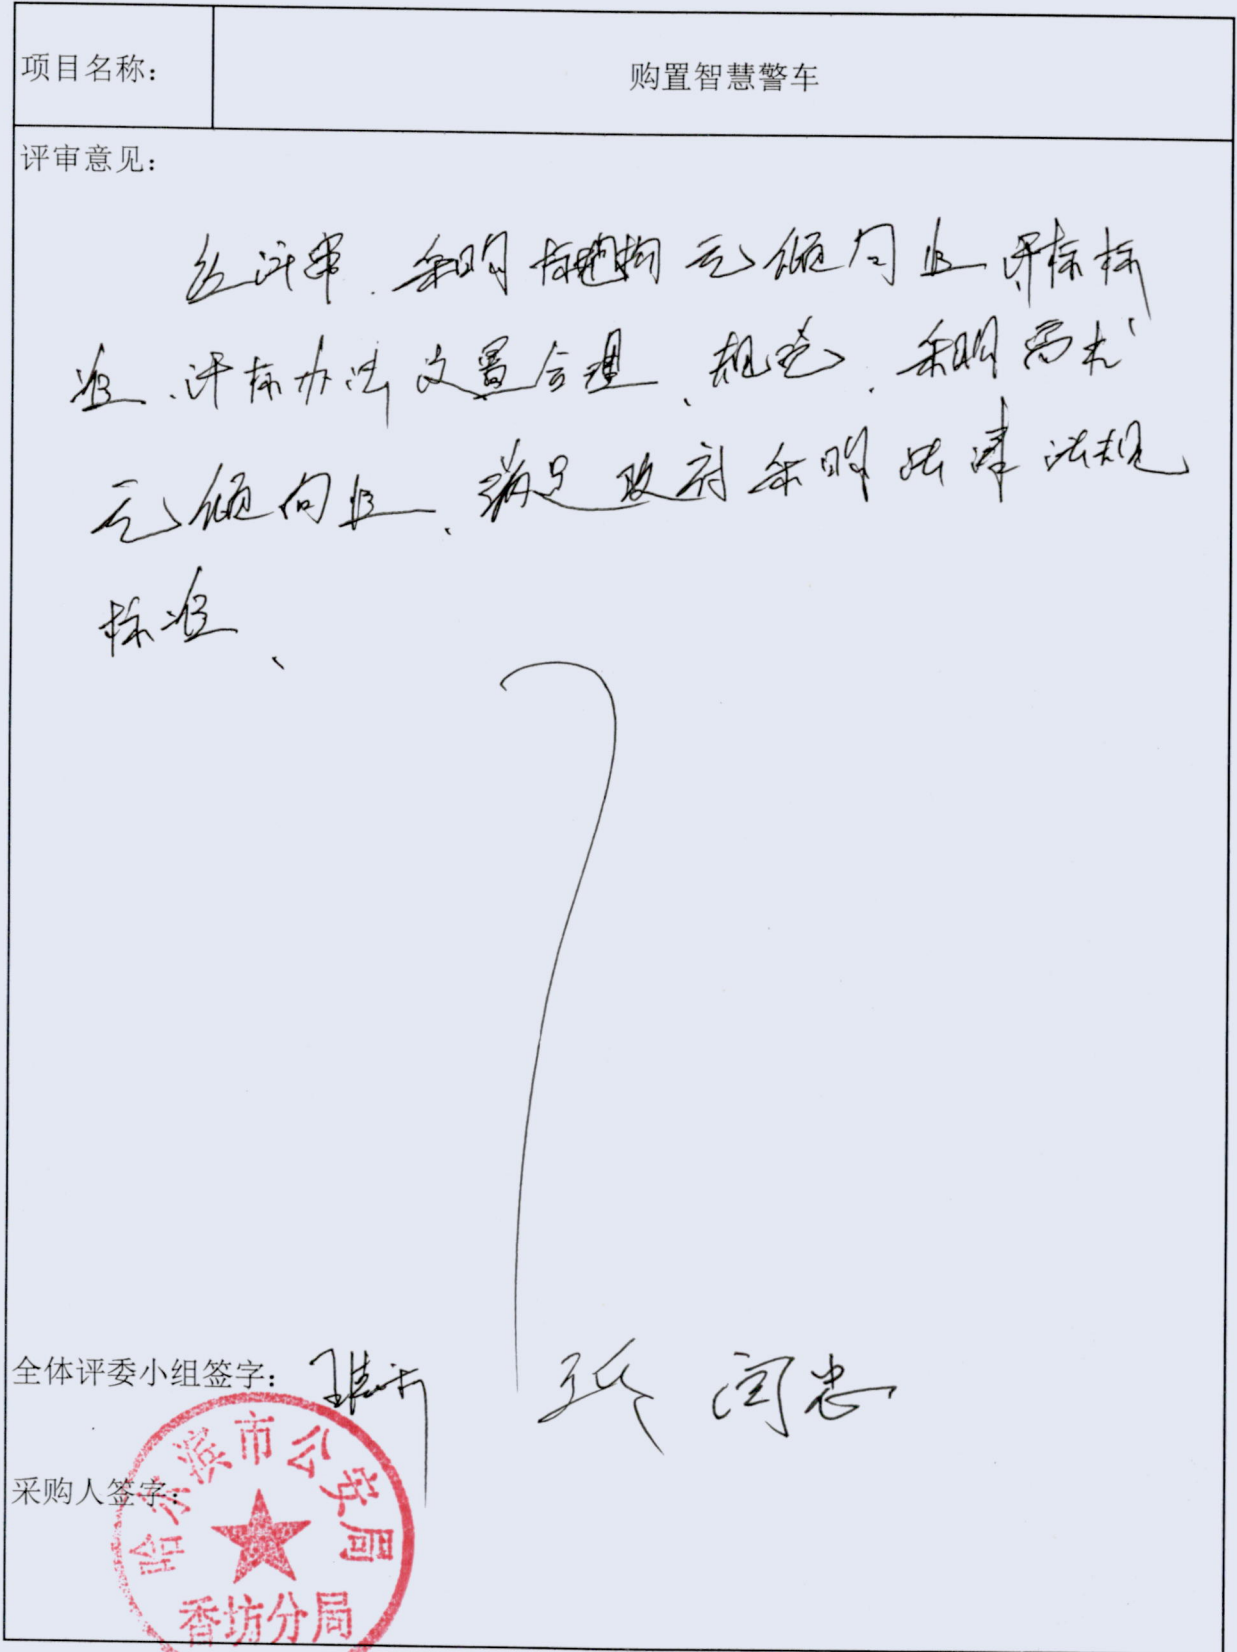 项目名称:
购置智慧警车
评审意见:
经评审、采购结构无倾向性、评标标
准、评标办法设置合理、规范、采购需求
无倾向性、满足政府采购法律法规
标准、
全体评委小组签字:
闫忠
采购人签字:
哈尔滨市公安局
香坊分局